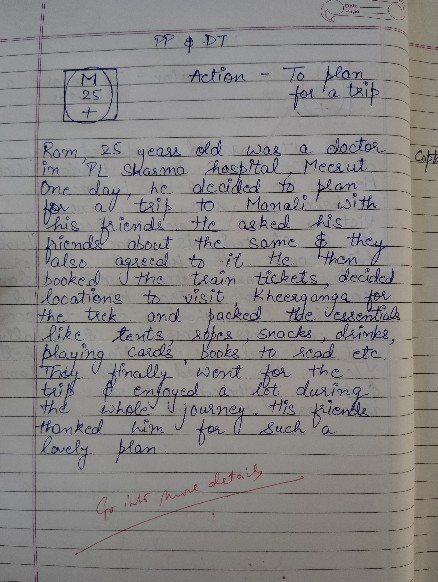 PP & DT
M
25
+
Action - To plan
for a trip
Ram, 25 years old was a doctor
in PL Sharma hospital, Meerut.
One day, he decided to plan
for a trip to Manali with
his friends. He asked his
friends about the same & they
also agreed to it. He then
booked the train tickets, decided
locations to visit, Kheerganga for
the trek and packed the essentials
like tents, ropes, snacks, drinks,
playing cards, books to read etc.
They finally went for the
trip & enjoyed a lot during
the whole journey. His friends
thanked him for such a
lovely plan.
Go into more details